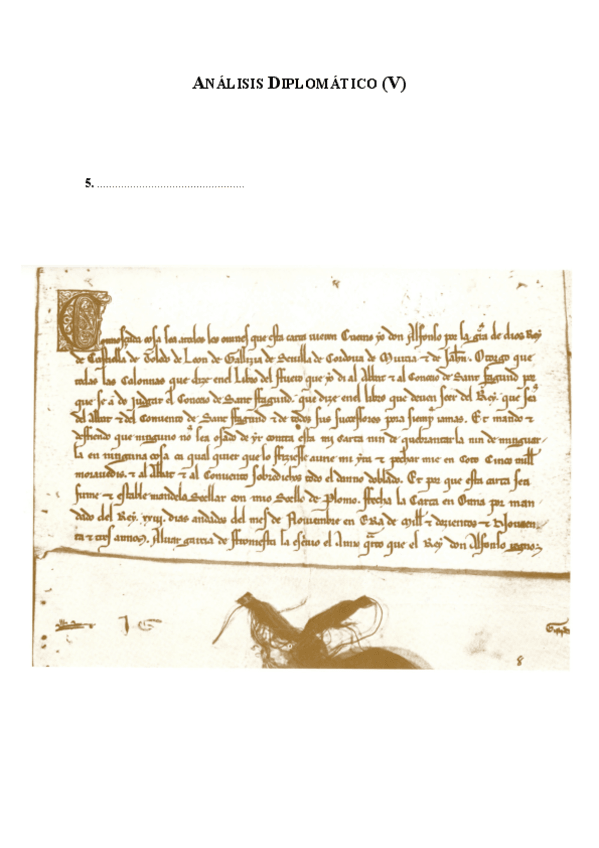 ANÁLISIS DIPLOMÁTICO (V)
5. ................................................
Connoscida cosa sea a todos los omnes que esta carta vieren Cuemo yo don Alfonso por la gra de dios Rey
de Castiella de Toledo de Leon de Gallizia de Seuilla de Cordoua de Murcia ⁊ de Jahen. Otorgo que
todas las Calonnas que dize en el Libro del ffuero que yo di al Abbat ⁊ al Conceio de Sant ffagund por
que se an de judgar el Conceio de Sant ffagund. que dize en el libro que deuen seer del Rey. que sean
del Abbat ⁊ del Conuento de Sant ffagund ⁊ de todos sus successores pora siempre iamas. Et mando ⁊
defiendo que ninguno non sea osado de yr contra esta mi Carta nin de quebrantar la nin de minguar
la en ninguna cosa ca qual quier que lo ffiziesse aurie mi yra ⁊ pechar me ie en Coto Cinco mill
morauedis. ⁊ al Abbat ⁊ al Conuento Sobredichos todo el danno doblado. Et por que esta carta sea
firme ⁊ estable mandela Seellar con mio Seello de Plomo. ffecha la Carta en Onna por man
dado del Rey. XXIII. dias andados del mes de Nouiembre en Era de mill ⁊ dozientos ⁊ Nouaen
ta ⁊ tres annos. Aluar garcia de ffromesta la escriuo el Anno quarto que el Rey don Alfonso regno
8